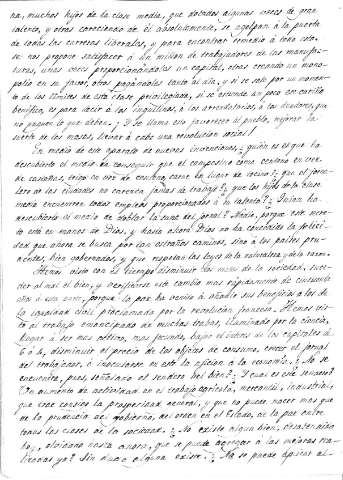 na, muchos hijos de la clase media, que dotados algunas veces de gran
talento, y otras careciendo de él absolutamente, se agolpan á la puerta
de todas las carreras liberales, y para encontrar remedio á todo esto
se nos propone satisfacer á un millon de trabajadores de las manufac-
turas, unas veces proporcionándoles un capital, otras creando un mono-
polio en su favor, otras pagándoles tanto al dia, y si se sale por un momen-
to de los límites de esta clase privilegiada, si se estiende un poco este cariño
benéfico, es para decir á los inquilinos, á los arrendatarios, á los deudores, que
no paguen lo que deben. ¿Y se llama esto favorecer al pueblo, mejorar la
suerte de las masas, llevar á cabo una revolucion social?
En medio de este aparato de nuevas invenciones, ¿quién es el que ha
descubierto el medio de conseguir que el campesino coma centeno en vez
de castañas, trigo en vez de centeno, carne en lugar de tocino?; que el jorna-
lero de las ciudades no carezca jamás de trabajo?; que los hijos de la clase
media encuentren todos empleos proporcionados á su talento? ¿Quien ha
descubierto el medio de doblar la suma del jornal? Nadie, porque este
está en manos de Dios, y hasta ahora Dios no ha concedido la felici-
dad que ahora se busca por tan estraños caminos, sino á los países pru-
dentes, bien gobernados, y que respetan las leyes de la naturaleza y de la razon.
Hemos visto con el tiempo disminuir los males de la sociedad, suce-
der al mal el bien, y verificarse este cambio mas rápidamente de cincuenta
años á esta parte, porque la paz ha venido á añadir sus beneficios á los de
la igualdad civil proclamada por la revolucion francesa. Hemos vis-
to al trabajo emancipado de muchas trabas, iluminado por la ciencia,
llegar á ser mas activo, mas fecundo, bajar el interes de los capitales de
6 á 4, disminuir el precio de los objetos de consumo, crecer el jornal
del trabajador, é introducirse en esto la aficion á la economía. ¿No se
encuentra, pues, señalado el sendero del bien? ¿Y cual es este sendero?
Un aumento de actividad en el trabajo agrícola, mercantil, industrial,
que crea consigo la prosperidad general, y que no puede nacer mas que
de la prudencia del gobierno, del orden en el Estado, de la paz entre
todas las clases de la sociedad. ¿No existe algun bien, desatendido
hoy, olvidado hasta ahora, que se pueda agregar á las mejoras rea-
lizadas ya? Sin duda alguna existe. ¿No se puede apelar al